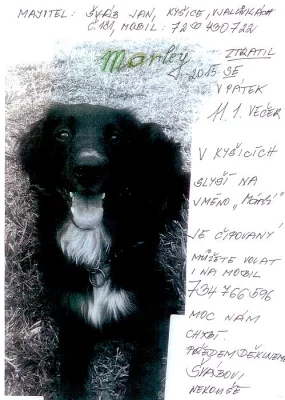 MAJITEL: ŠVÁB JAN, KYŠICE, V JALŮVKÁCH
Č. 181, MOBIL: 720 430 722
Marley
ZTRATIL
2015 SE
V PÁTEK
11.1. VEČER
V KYŠICÍCH
SLYŠÍ NA
JMÉNO „Márlí"
JE ČIPOVANÝ
MŮŽETE VOLAT
I NA MOBIL
734 766 596
MOC NÁM
CHYBÍ.
PŘEDEM DĚKUJEME
ŠVÁBOVI,